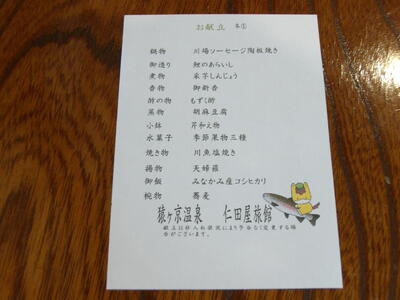 お献立 冬①
鍋物 川場ソーセージ陶板焼き
御造り 鯉のあらいし
煮物 采芋しんじょう
香物 御新香
酢の物 もずく酢
蒸物 胡麻豆腐
小鉢 芹和え物
水菓子 季節果物三種
焼き物 川魚塩焼き
揚物 天婦羅
御飯 みなかみ産コシヒカリ
椀物 蕎麦
猿ヶ京温泉 仁田屋旅館
献立は仕入れ状況により予告なく変更する場
合がございます。